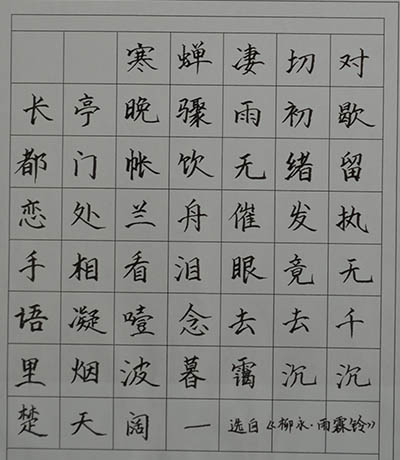 寒蝉凄切对
长亭晚骤雨初歇
都门帐饮无绪留
恋处兰舟催发执
手相看泪眼竟无
语凝噎念去去千
里烟波暮霭沉沉
楚天阔一选自《柳永·雨霖铃》